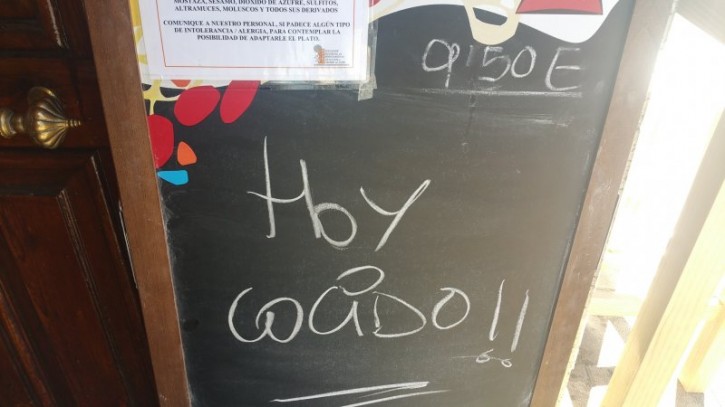 MOSTAZA, SÉSAMO, DIÓXIDO DE AZUFRE, SULFITOS,
ALTRAMUCES, MOLUSCOS Y TODOS SUS DERIVADOS
COMUNIQUE A NUESTRO PERSONAL, SI PADECE ALGÚN TIPO
DE INTOLERANCIA / ALERGIA, PARA CONTEMPLAR LA
POSIBILIDAD DE ADAPTARLE EL PLATO.
9'50E
HOY
COCIDO!!